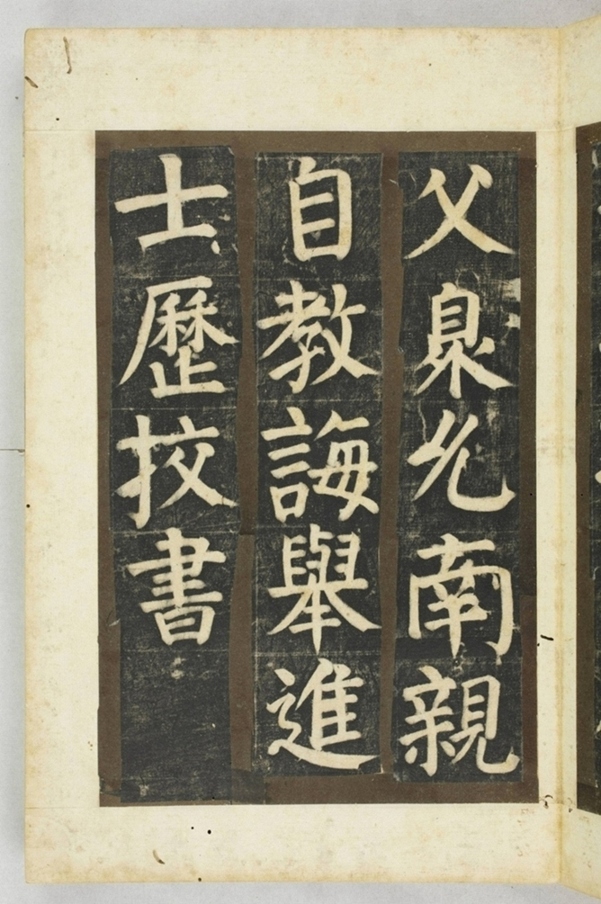 父臮允南親
自教誨舉進
士歷挍書